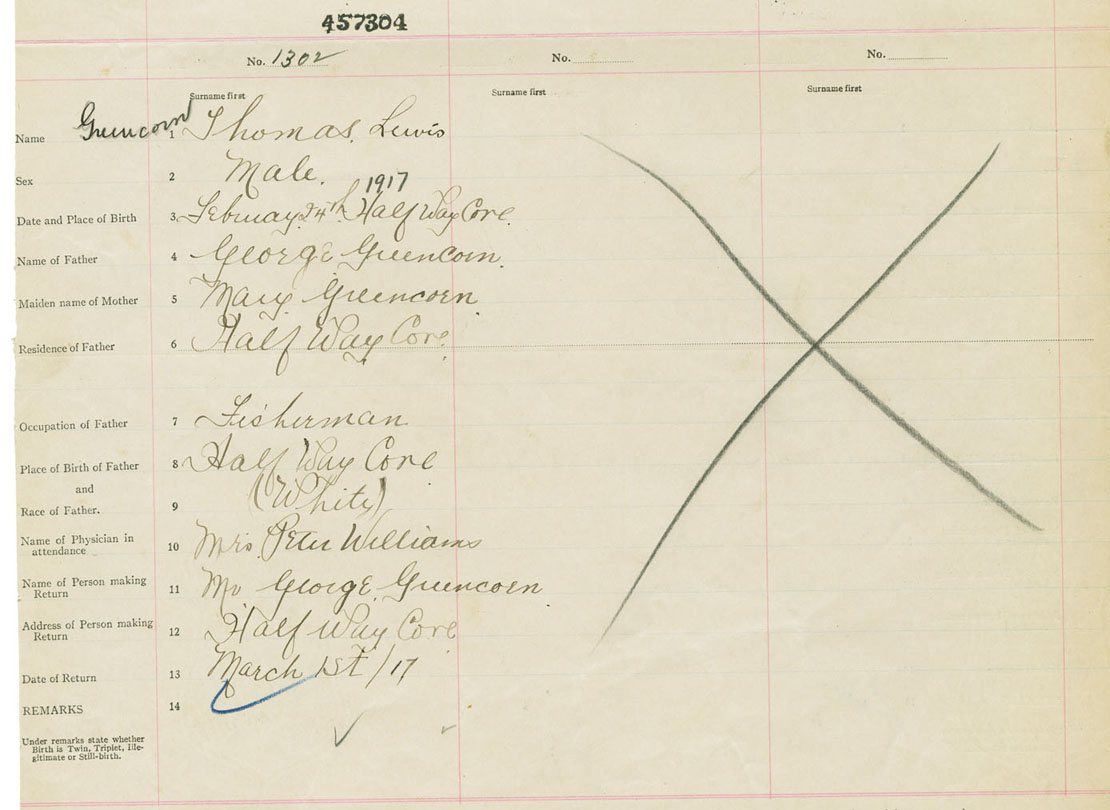 457304
No. 1302 No. No.
Surname first Surname first Surname first
Name Greencorn 1 Thomas, Lewis
Sex 2 Male.
1917
Date and Place of Birth 3 February 24th Half Way Cove.
Name of Father 4 George Greencorn.
Maiden name of Mother 5 Mary Greencorn
Residence of Father 6 Half Way Cove.
Occupation of Father 7 Fisherman
Place of Birth of Father 8 Half Way Cove
and
Race of Father. 9 (White)
Name of Physician in
attendance 10 Mrs Peter Williams
Name of Person making
Return 11 Mr George Greencorn
Address of Person making
Return 12 Half Way Cove
Date of Return 13 March 1st/17
REMARKS 14
Under remarks state whether
Birth is Twin, Triplet, Ille-
gitimate or Still-birth.